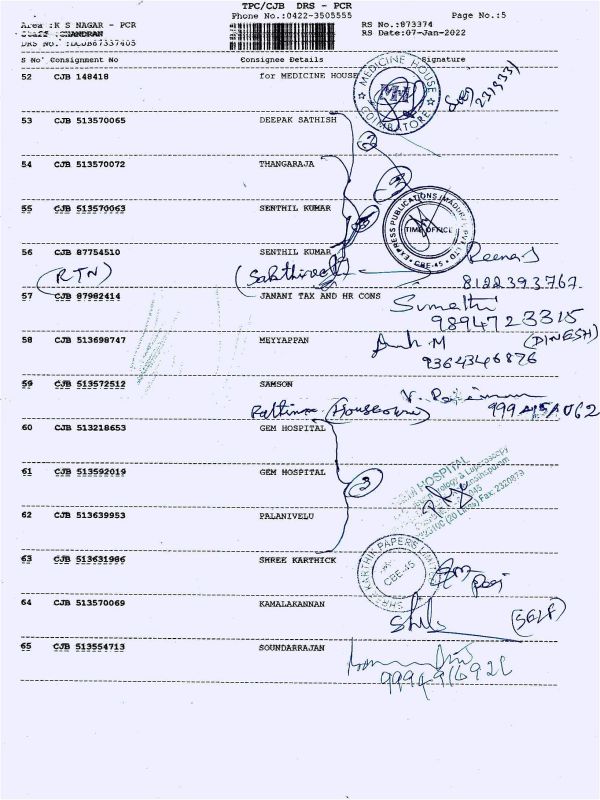 TPC/CJB DRS - PCR
Phone No.:0422-3505555 Page No.:5
Area :K S NAGAR - PCR RS No.:873374
Staff :CHANDRAN RS Date:07-Jan-2022
DRS No. :DCJB87337405
S No' Consignment No Consignee Details Signature
52 CJB 148418 for MEDICINE HOUSE
MEDICINE HOUSE
COIMBATORE
2319331
53 CJB 513570065 DEEPAK SATHISH
2
54 CJB 513570072 THANGARAJA
55 CJB 513570063 SENTHIL KUMAR
EXPRESS PUBLICATIONS (MADURAI) PVT LTD
TIME OFFICE
CBE-45
56 CJB 87754510 SENTHIL KUMAR
(RTN) (Sakthivel)
8122393767
57 CJB 87982414 JANANI TAX AND HR CONS
Sumathi
9894723315
58 CJB 513698747 MEYYAPPAN
(DINESH)
9364346876
59 CJB 513572512 SAMSON
60 CJB 513218653 GEM HOSPITAL
61 CJB 513592019 GEM HOSPITAL
GEM HOSPITAL
3
62 CJB 513639953 PALANIVELU
63 CJB 513631986 SHREE KARTHICK
SHREE KARTHIK PAPERS LIMITED
CBE-45
64 CJB 513570069 KAMALAKANNAN
(SELF)
65 CJB 513554713 SOUNDARRAJAN